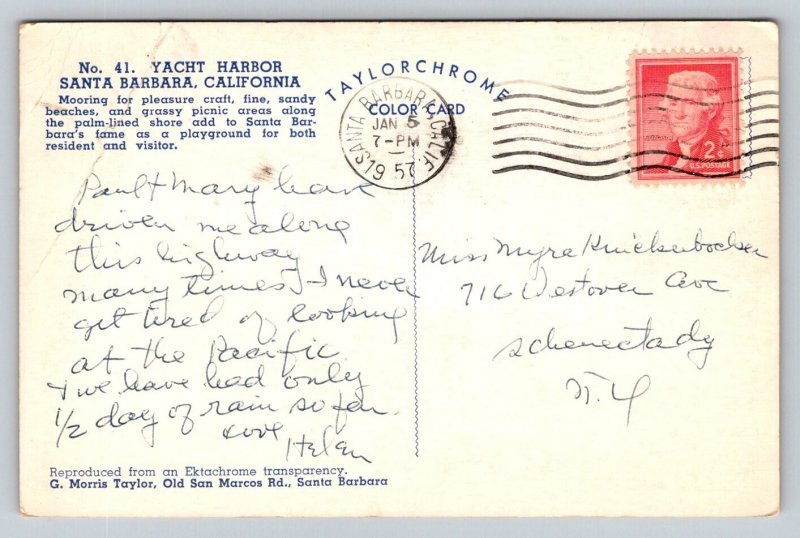 No. 41. YACHT HARBOR
SANTA BARBARA, CALIFORNIA
Mooring for pleasure craft, fine, sandy
beaches, and grassy picnic areas along
the palm-lined shore add to Santa Bar-
bara's fame as a playground for both
resident and visitor.
TAYLORCHROME
COLOR CARD
SANTA BARBARA, CALIF.
JAN 5
7-PM
1957
2¢
U.S. POSTAGE
Paul & Mary have
driven me along
this highway
many times. I never
get tired of looking
at the Pacific
& we have had only
1/2 day of rain so far.
Love
Helen
Miss Myra Knickerbocker
716 Westover Ave
Schenectady
N.Y
Reproduced from an Ektachrome transparency.
G. Morris Taylor, Old San Marcos Rd., Santa Barbara